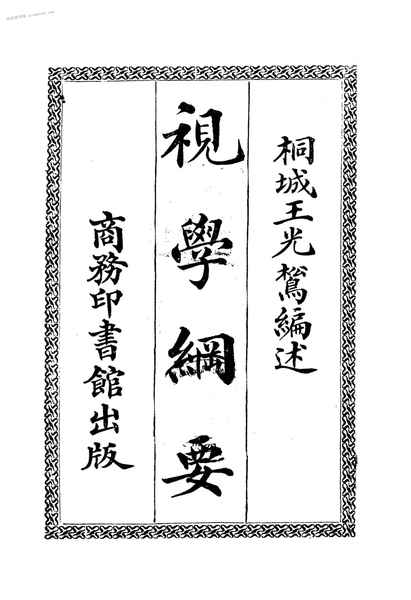 桐城王光鷟編述
視學綱要
商務印書館出版